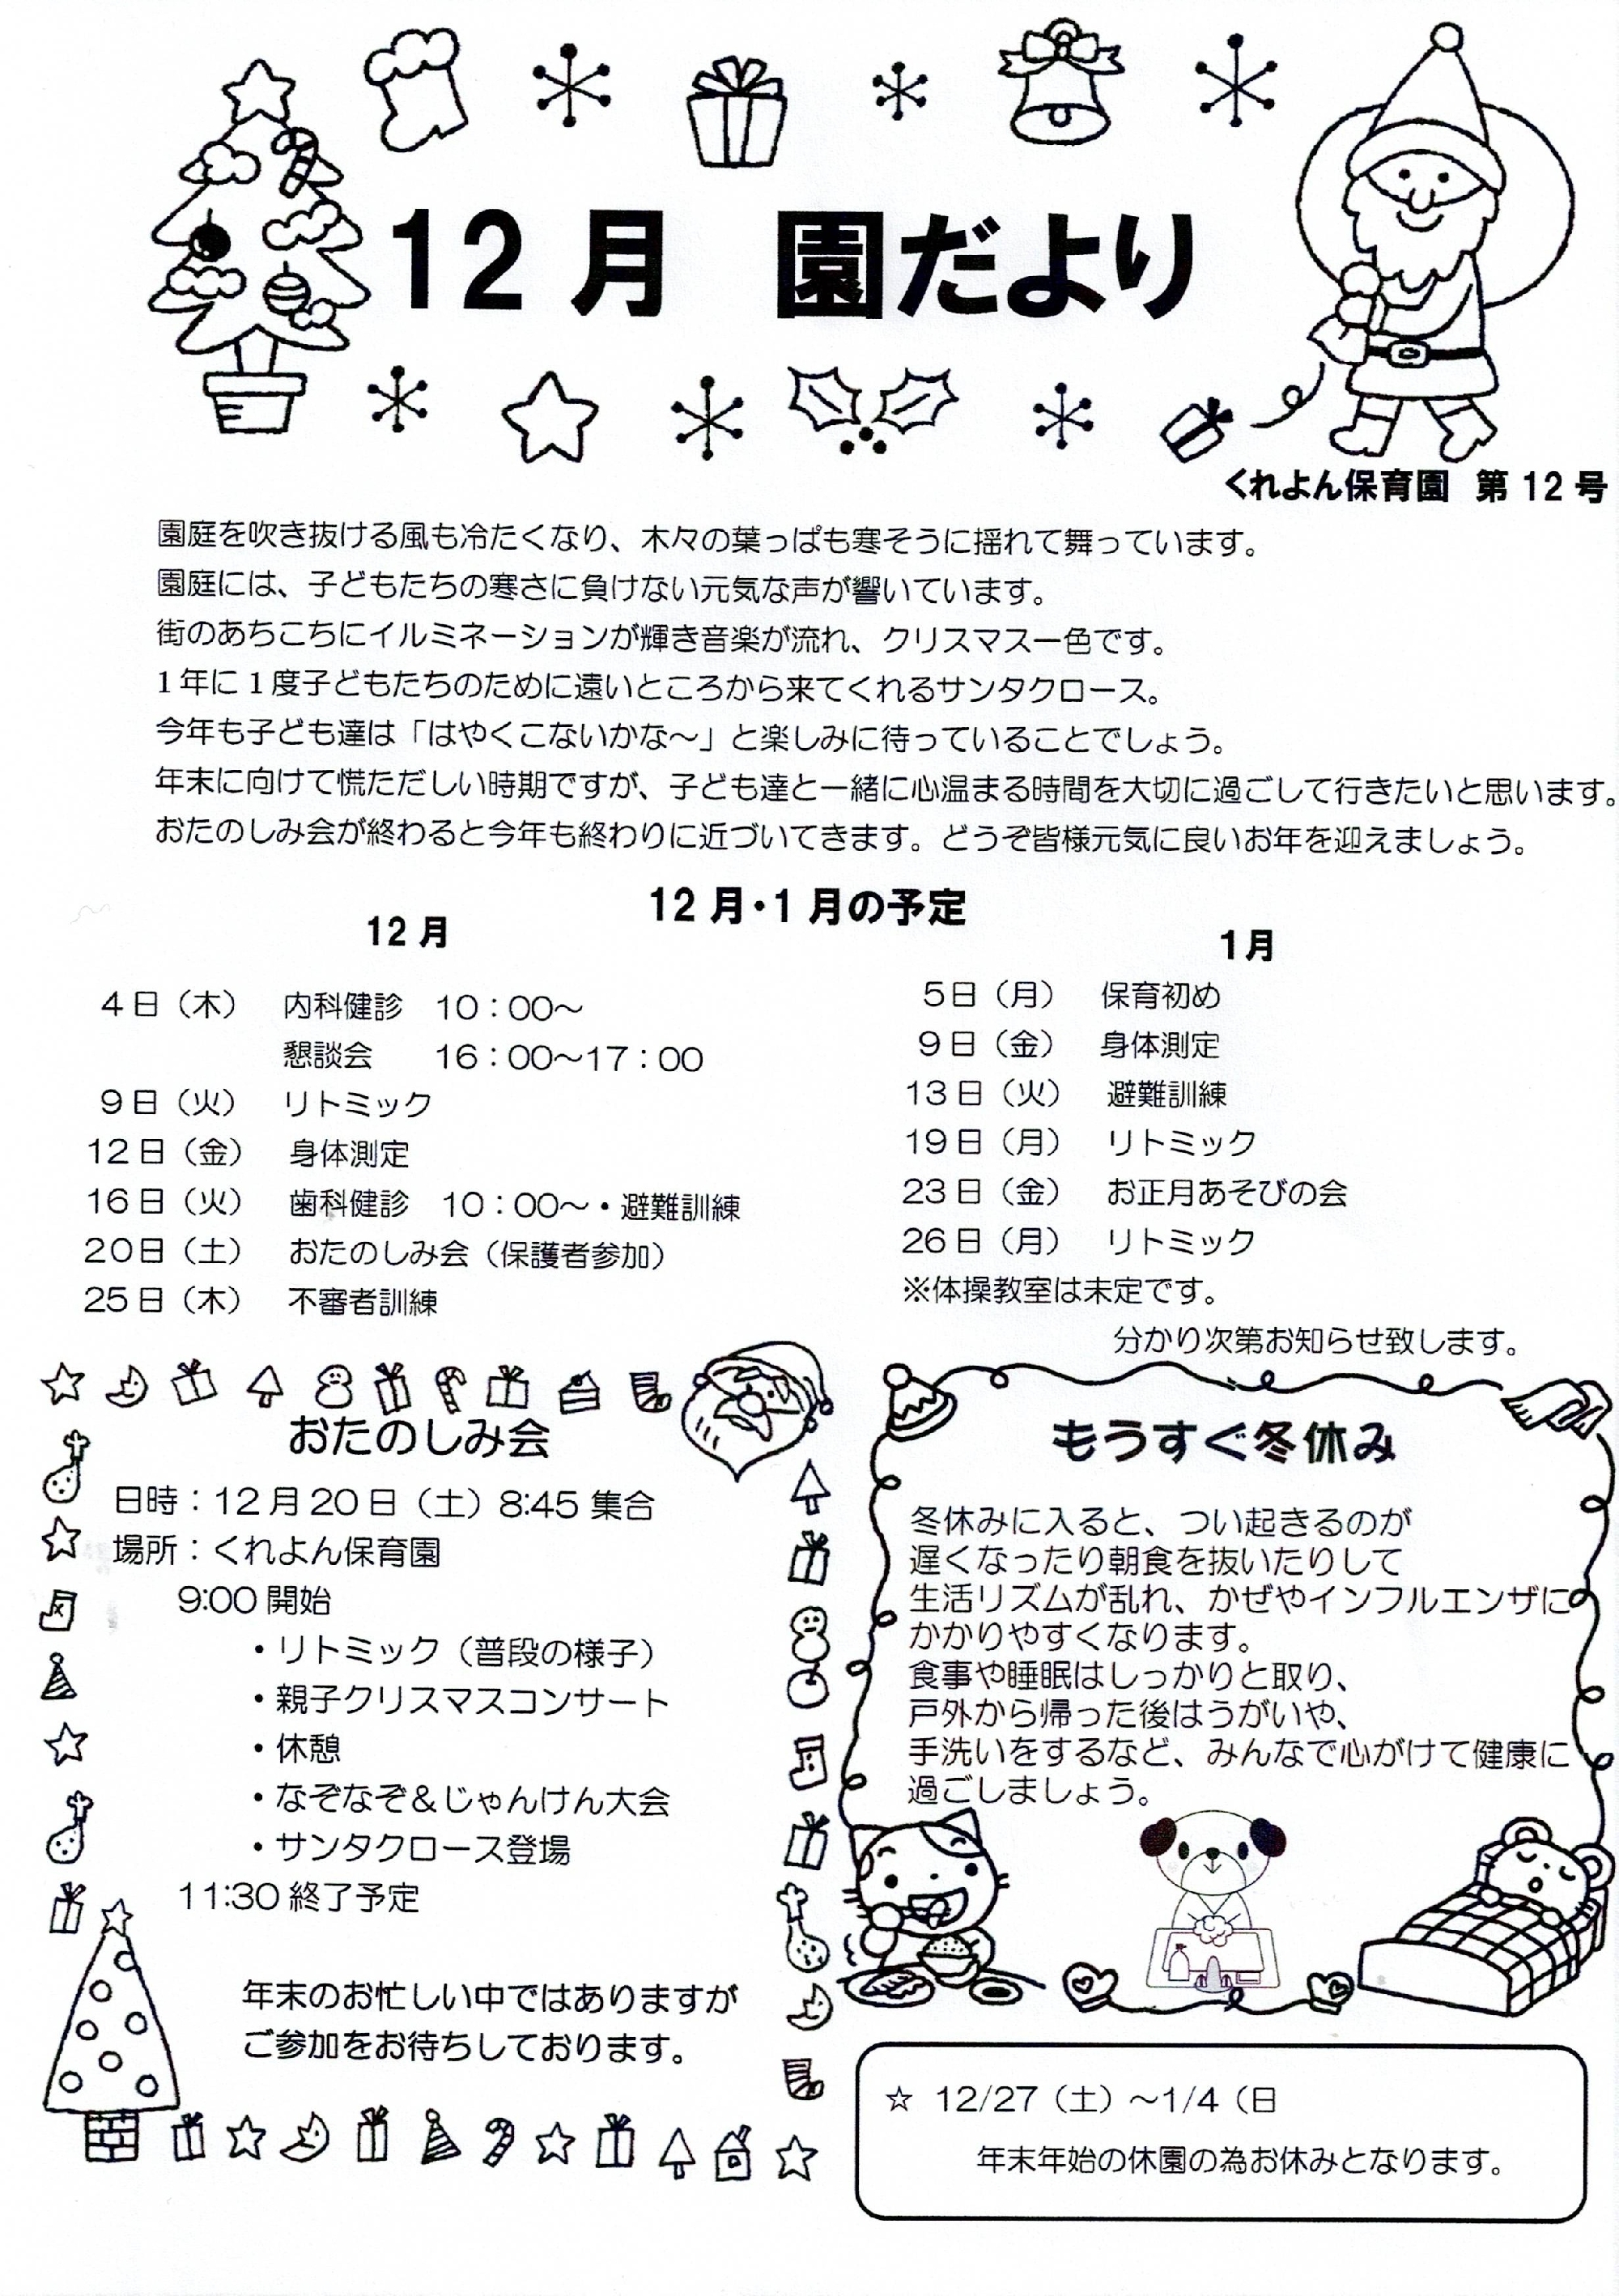 12月 園だより
くれよん保育園 第12号
園庭を吹き抜ける風も冷たくなり、木々の葉っぱも寒そうに揺れて舞っています。
園庭には、子どもたちの寒さに負けない元気な声が響いています。
街のあちこちにイルミネーションが輝き音楽が流れ、クリスマス一色です。
1年に1度子どもたちのために遠いところから来てくれるサンタクロース。
今年も子ども達は「はやくこないかな～」と楽しみに待っていることでしょう。
年末に向けて慌ただしい時期ですが、子ども達と一緒に心温まる時間を大切に過ごして行きたいと思います。
おたのしみ会が終わると今年も終わりに近づいてきます。どうぞ皆様元気に良いお年を迎えましょう。
12月・1月の予定
12月
4日（木） 内科健診 10：00～
懇談会 16：00～17：00
9日（火） リトミック
12日（金） 身体測定
16日（火） 歯科健診 10：00～・避難訓練
20日（土） おたのしみ会（保護者参加）
25日（木） 不審者訓練
1月
5日（月） 保育初め
9日（金） 身体測定
13日（火） 避難訓練
19日（月） リトミック
23日（金） お正月あそびの会
26日（月） リトミック
※体操教室は未定です。
分かり次第お知らせ致します。
おたのしみ会
日時：12月20日（土）8:45 集合
場所：くれよん保育園
9:00 開始
・リトミック（普段の様子）
・親子クリスマスコンサート
・休憩
・なぞなぞ＆じゃんけん大会
・サンタクロース登場
11:30 終了予定
年末のお忙しい中ではありますが
ご参加をお待ちしております。
もうすぐ冬休み
冬休みに入ると、つい起きるのが
遅くなったり朝食を抜いたりして
生活リズムが乱れ、かぜやインフルエンザに
かかりやすくなります。
食事や睡眠はしっかりと取り、
戸外から帰った後はうがいや、
手洗いをするなど、みんなで心がけて健康に
過ごしましょう。
☆ 12/27（土）～1/4（日
年末年始の休園の為お休みとなります。